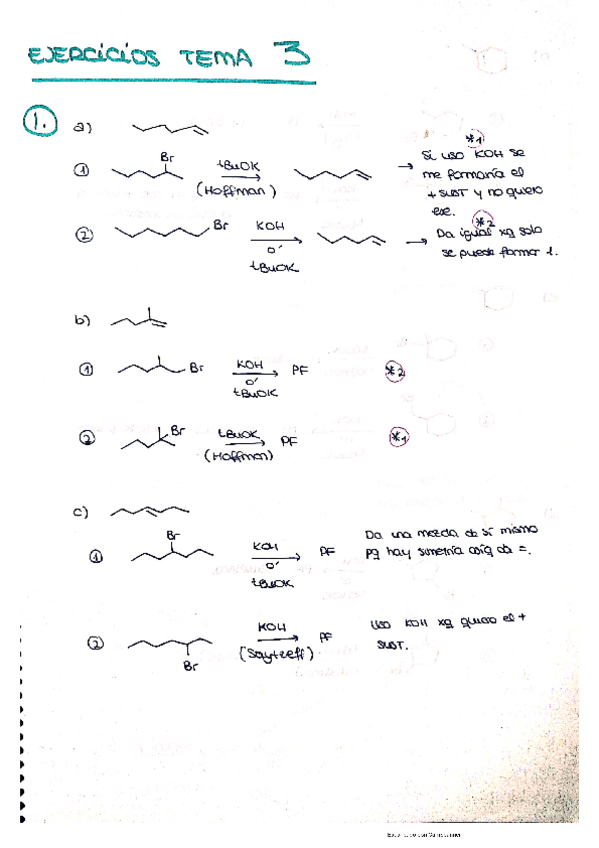 EJERCICIOS TEMA 3
1. a)
*1
① Br tBuOK (Hoffman) → Si uso KOH se
me formaría el
+ SUST y no quiero
ese.
*2
② Br KOH o' tBuOK → Da igual xq solo
se puede formar 1.
b)
① Br KOH o' tBuOK PF *2
② Br tBuOK (Hoffman) PF *1
c)
① Br KOH o' tBuOK PF Da una mezcla de sí mismo
pq hay simetría así q da =.
② Br KOH (Saytzeff) PF Uso KOH xq quiero el +
SUST.